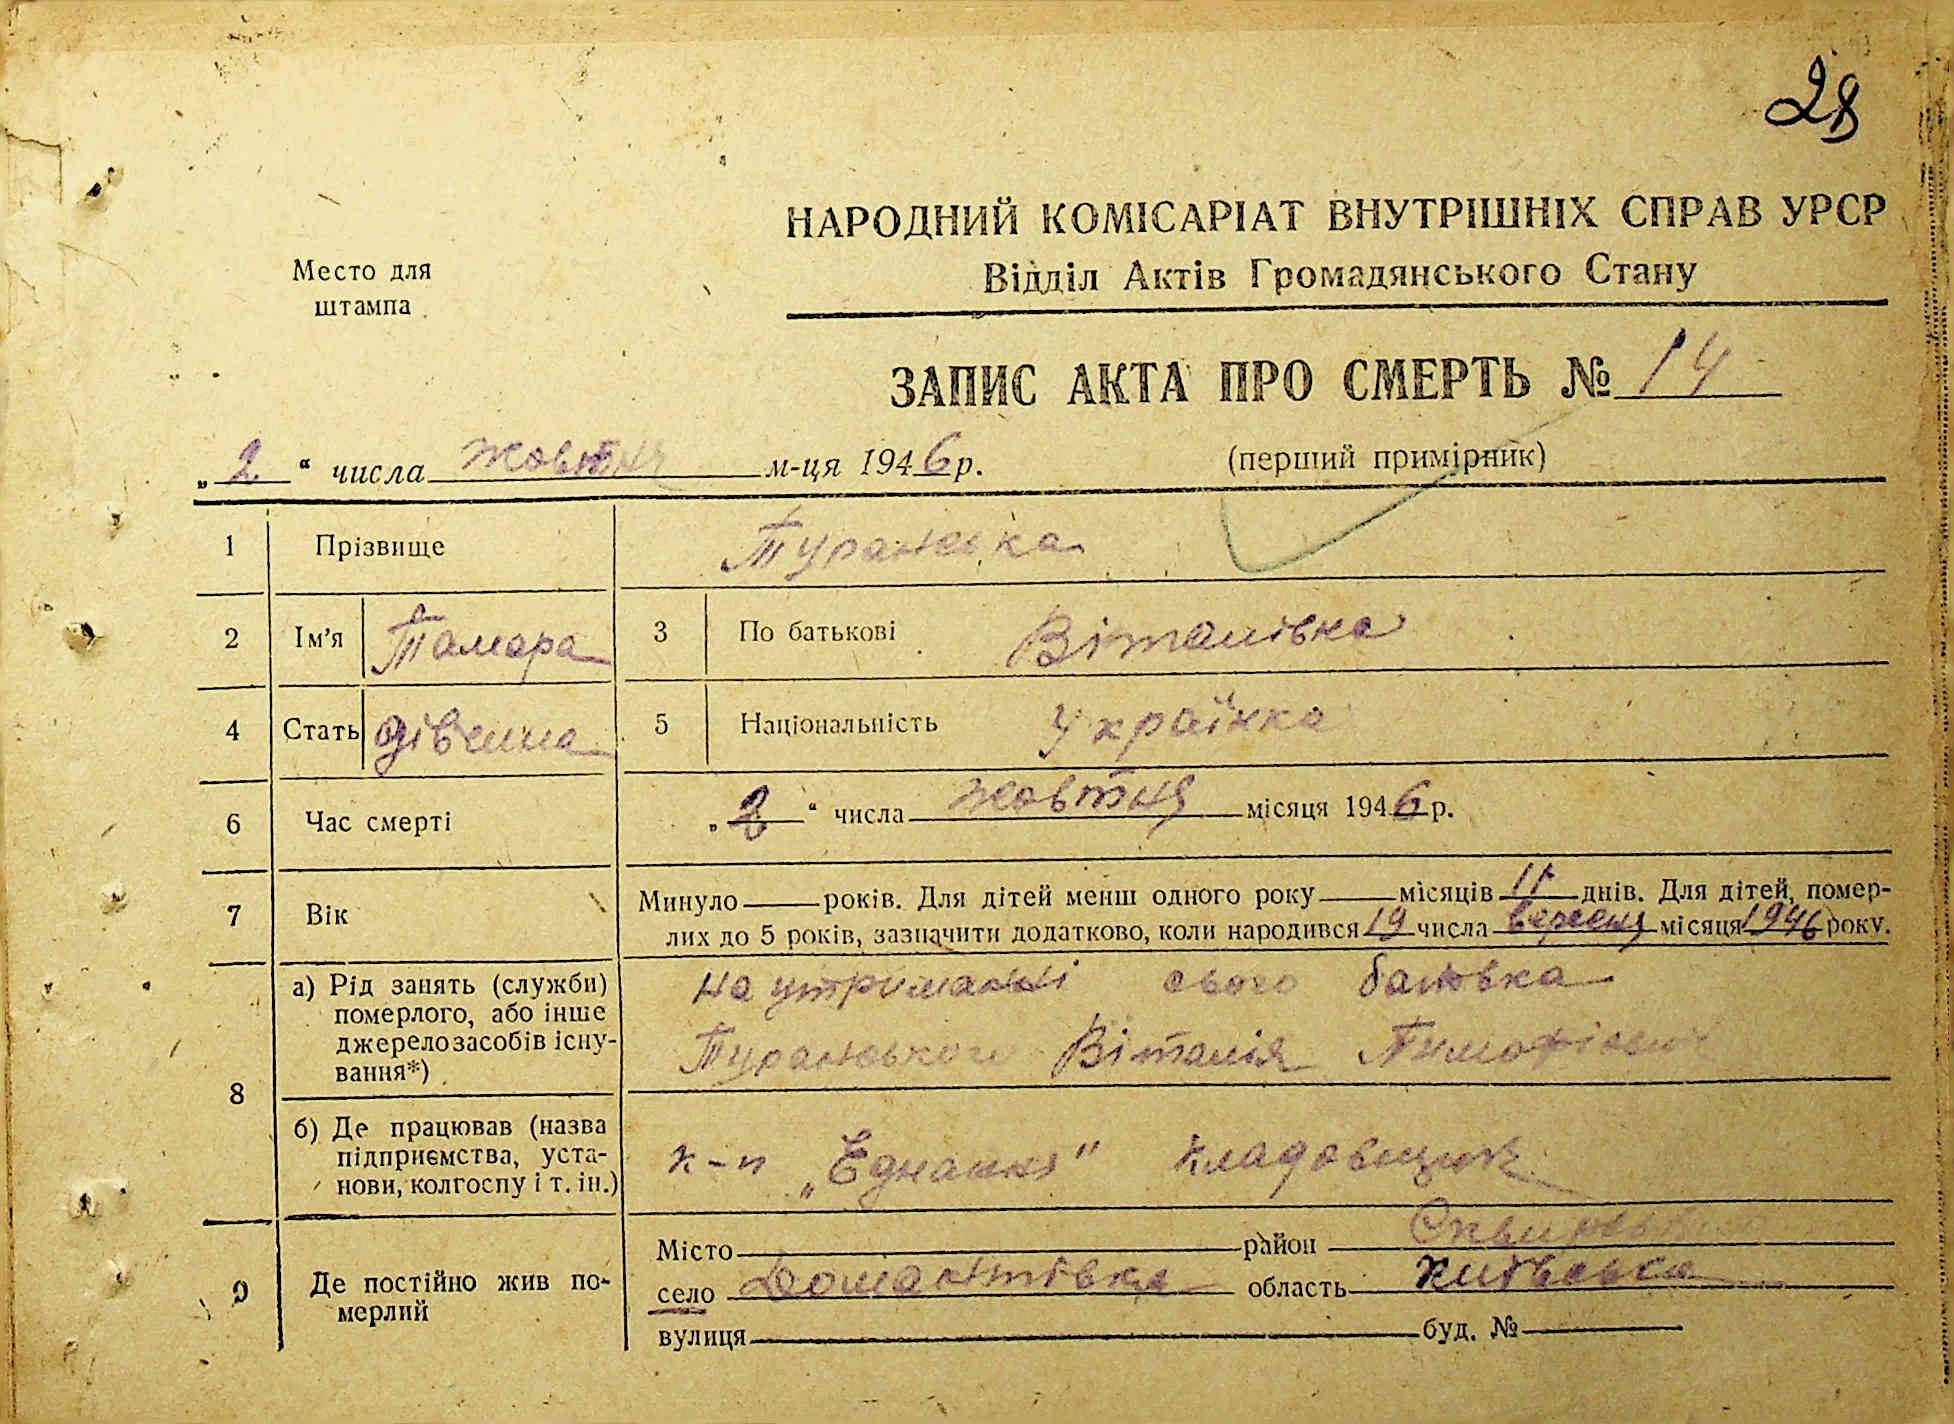 28
НАРОДНИЙ КОМІСАРІАТ ВНУТРІШНІХ СПРАВ УРСР
Відділ Актів Громадянського Стану
Место для
штампа
ЗАПИС АКТА ПРО СМЕРТЬ № 14
„2“ числа жовтня м-ця 1946 р.
(перший примірник)
1 Прізвище Туранська
2 Ім'я Тамара 3 По батькові Віталівна
4 Стать дівчина 5 Національність Українка
6 Час смерті „2“ числа жовтня місяця 1946 р.
7 Вік Минуло років. Для дітей менш одного року місяців 11 днів. Для дітей, помер-
лих до 5 років, зазначити додатково, коли народився 19 числа вересня місяця 1946 року.
8 а) Рід занять (служби)
померлого, або інше
джерело засобів існу-
вання*)
на утриманні свого батька
Туранського Віталія Тимофієвич
б) Де працював (назва
підприємства, уста-
нови, колгоспу і т. ін.)
к-п „Єднання" кладовщик
9 Де постійно жив по-
мерлий
Місто район Сквирський
село Домантівка область Київська
вулиця буд. №